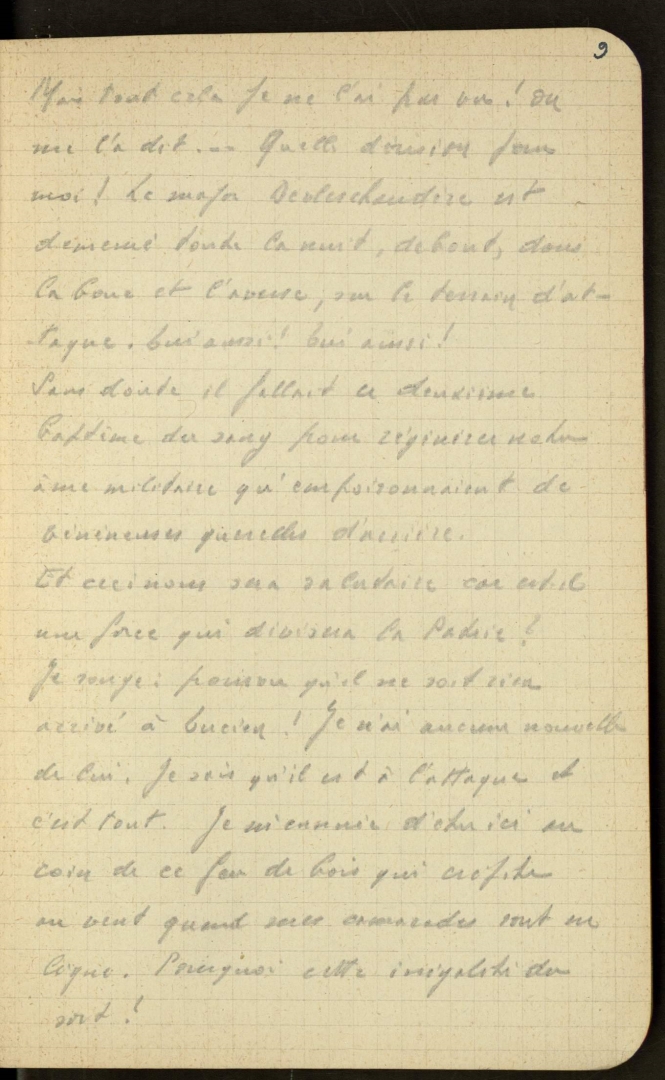 9
Mais tout cela je ne l'ai pas vu ! On
me l'a dit. — Quelle division pour
moi ! Le major est
demeuré toute la nuit, debout, dans
la boue et l'averse, sur le terrain d'at-
taque. Lui aussi ! Lui aussi !
Sans doute il fallait ce deuxième
baptême du sang pour régénérer notre
âme militaire qu'empoisonnaient de
vénéneuses querelles d'arrière.
Et ceci nous sera salutaire car est-il
une force qui divisera la Patrie ?
Je songe : pourvu qu'il ne soit rien
arrivé à Lucien ! Je n'ai aucune nouvelle
de lui. Je sais qu'il est à l'attaque et
c'est tout. Je m'ennuie d'être ici au
coin de ce feu de bois qui crépite
au vent quand mes camarades sont en
ligne. Pourquoi cette inégalité du
sort !